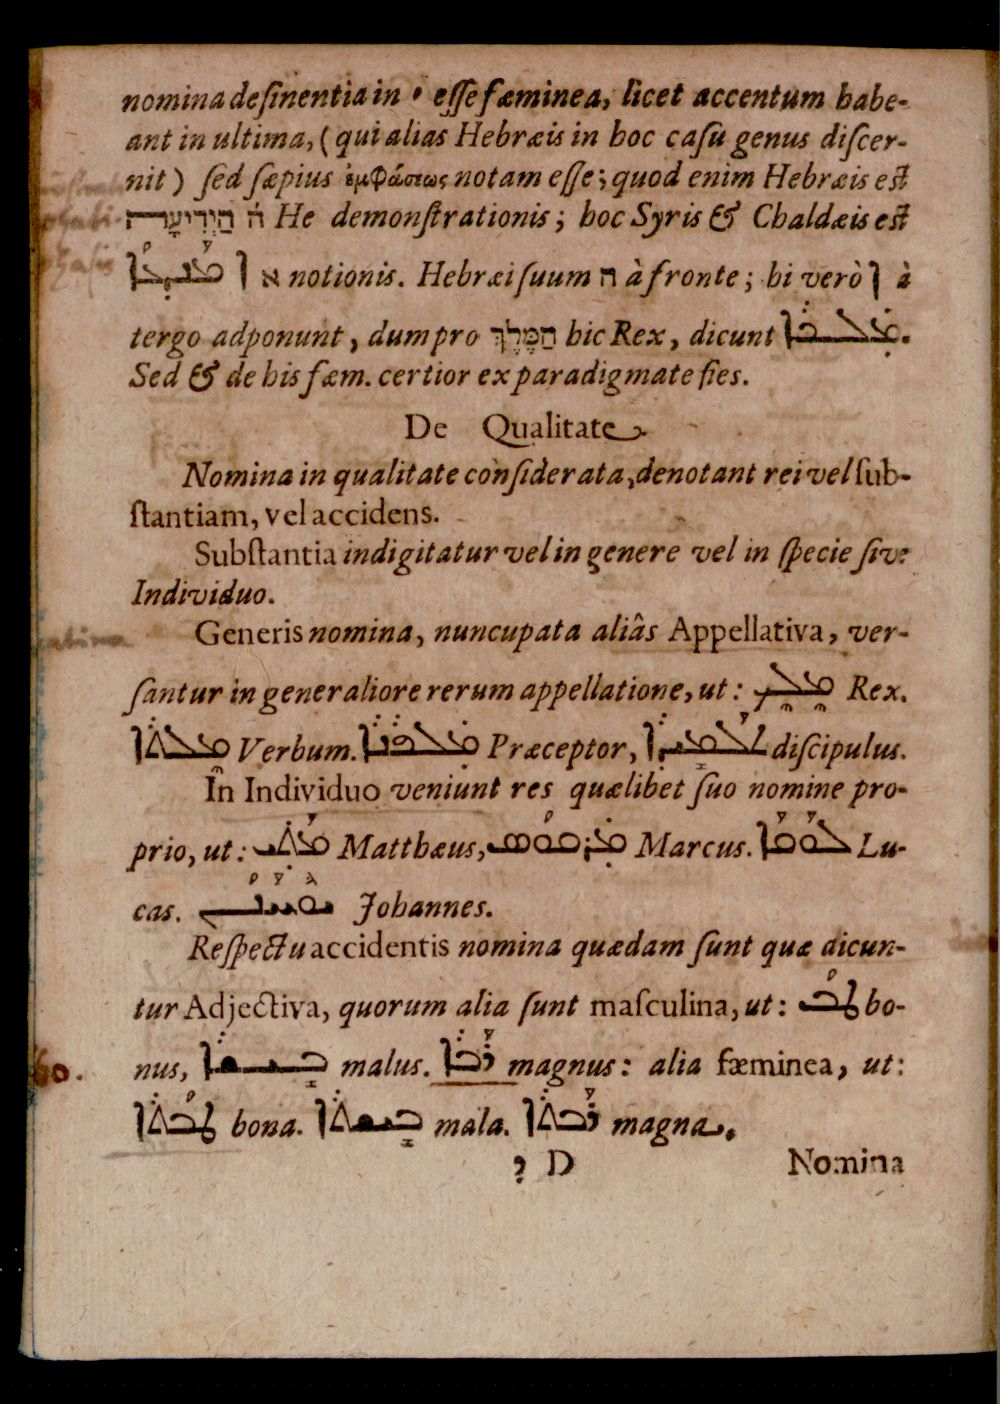 nomina desinentia in esse fæminea, licet accentum habe-
ant in ultima, (qui alias Hebræis in hoc casu genus discer-
nit) sed sæpius ἐμφάσεως notam esse; quod enim Hebræis est
הַיְדִיעָה הֿ He demonstrationis; hoc Syris & Chaldæis est
ܐ א notionis. Hebræi suum ה à fronte; hi verò ܐ à
tergo adponunt, dum pro הַמֶּלֶךְ hic Rex, dicunt ܡܠܟܐ.
Sed & de his fæm. certior ex paradigmate fies.
De Qualitate
Nomina in qualitate considerata, denotant rei vel sub-
stantiam, vel accidens.
Substantia indigitatur vel in genere vel in specie sive
Individuo.
Generis nomina, nuncupata aliâs Appellativa, ver-
santur in generaliore rerum appellatione, ut: ܡܠܟ Rex.
ܡܠܬܐ Verbum. ܡܠܦܢܐ Præceptor, ܬܠܡܝܕܐ discipulus.
In Individuo veniunt res quælibet suo nomine pro-
prio, ut: ܡܬܝ Matthæus, ܡܪܩܘܣ Marcus. ܠܘܩܐ Lu-
cas. ܝܘܚܢܢ Johannes.
Respectu accidentis nomina quædam sunt quæ dicun-
tur Adjectiva, quorum alia sunt masculina, ut: ܛܒ bo-
nus, ܒܝܫܐ malus. ܪܒܐ magnus: alia fæminea, ut:
60.
ܛܒܬܐ bona. ܒܝܫܬܐ mala. ܪܒܬܐ magna.
D
Nomina